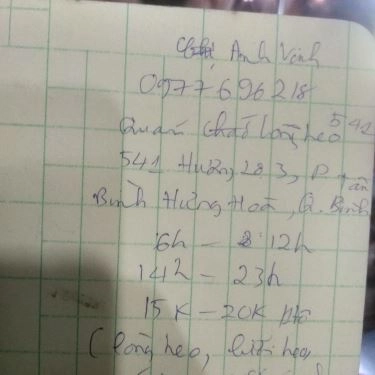 Anh Vinh
0977696218
Quán cháo lòng heo 541
541 Hương lộ 3, P Tân
Bình Hưng Hoà, Q. Bình
6h - 12h
14h - 23h
15K - 20K
(lòng heo, lưỡi heo,